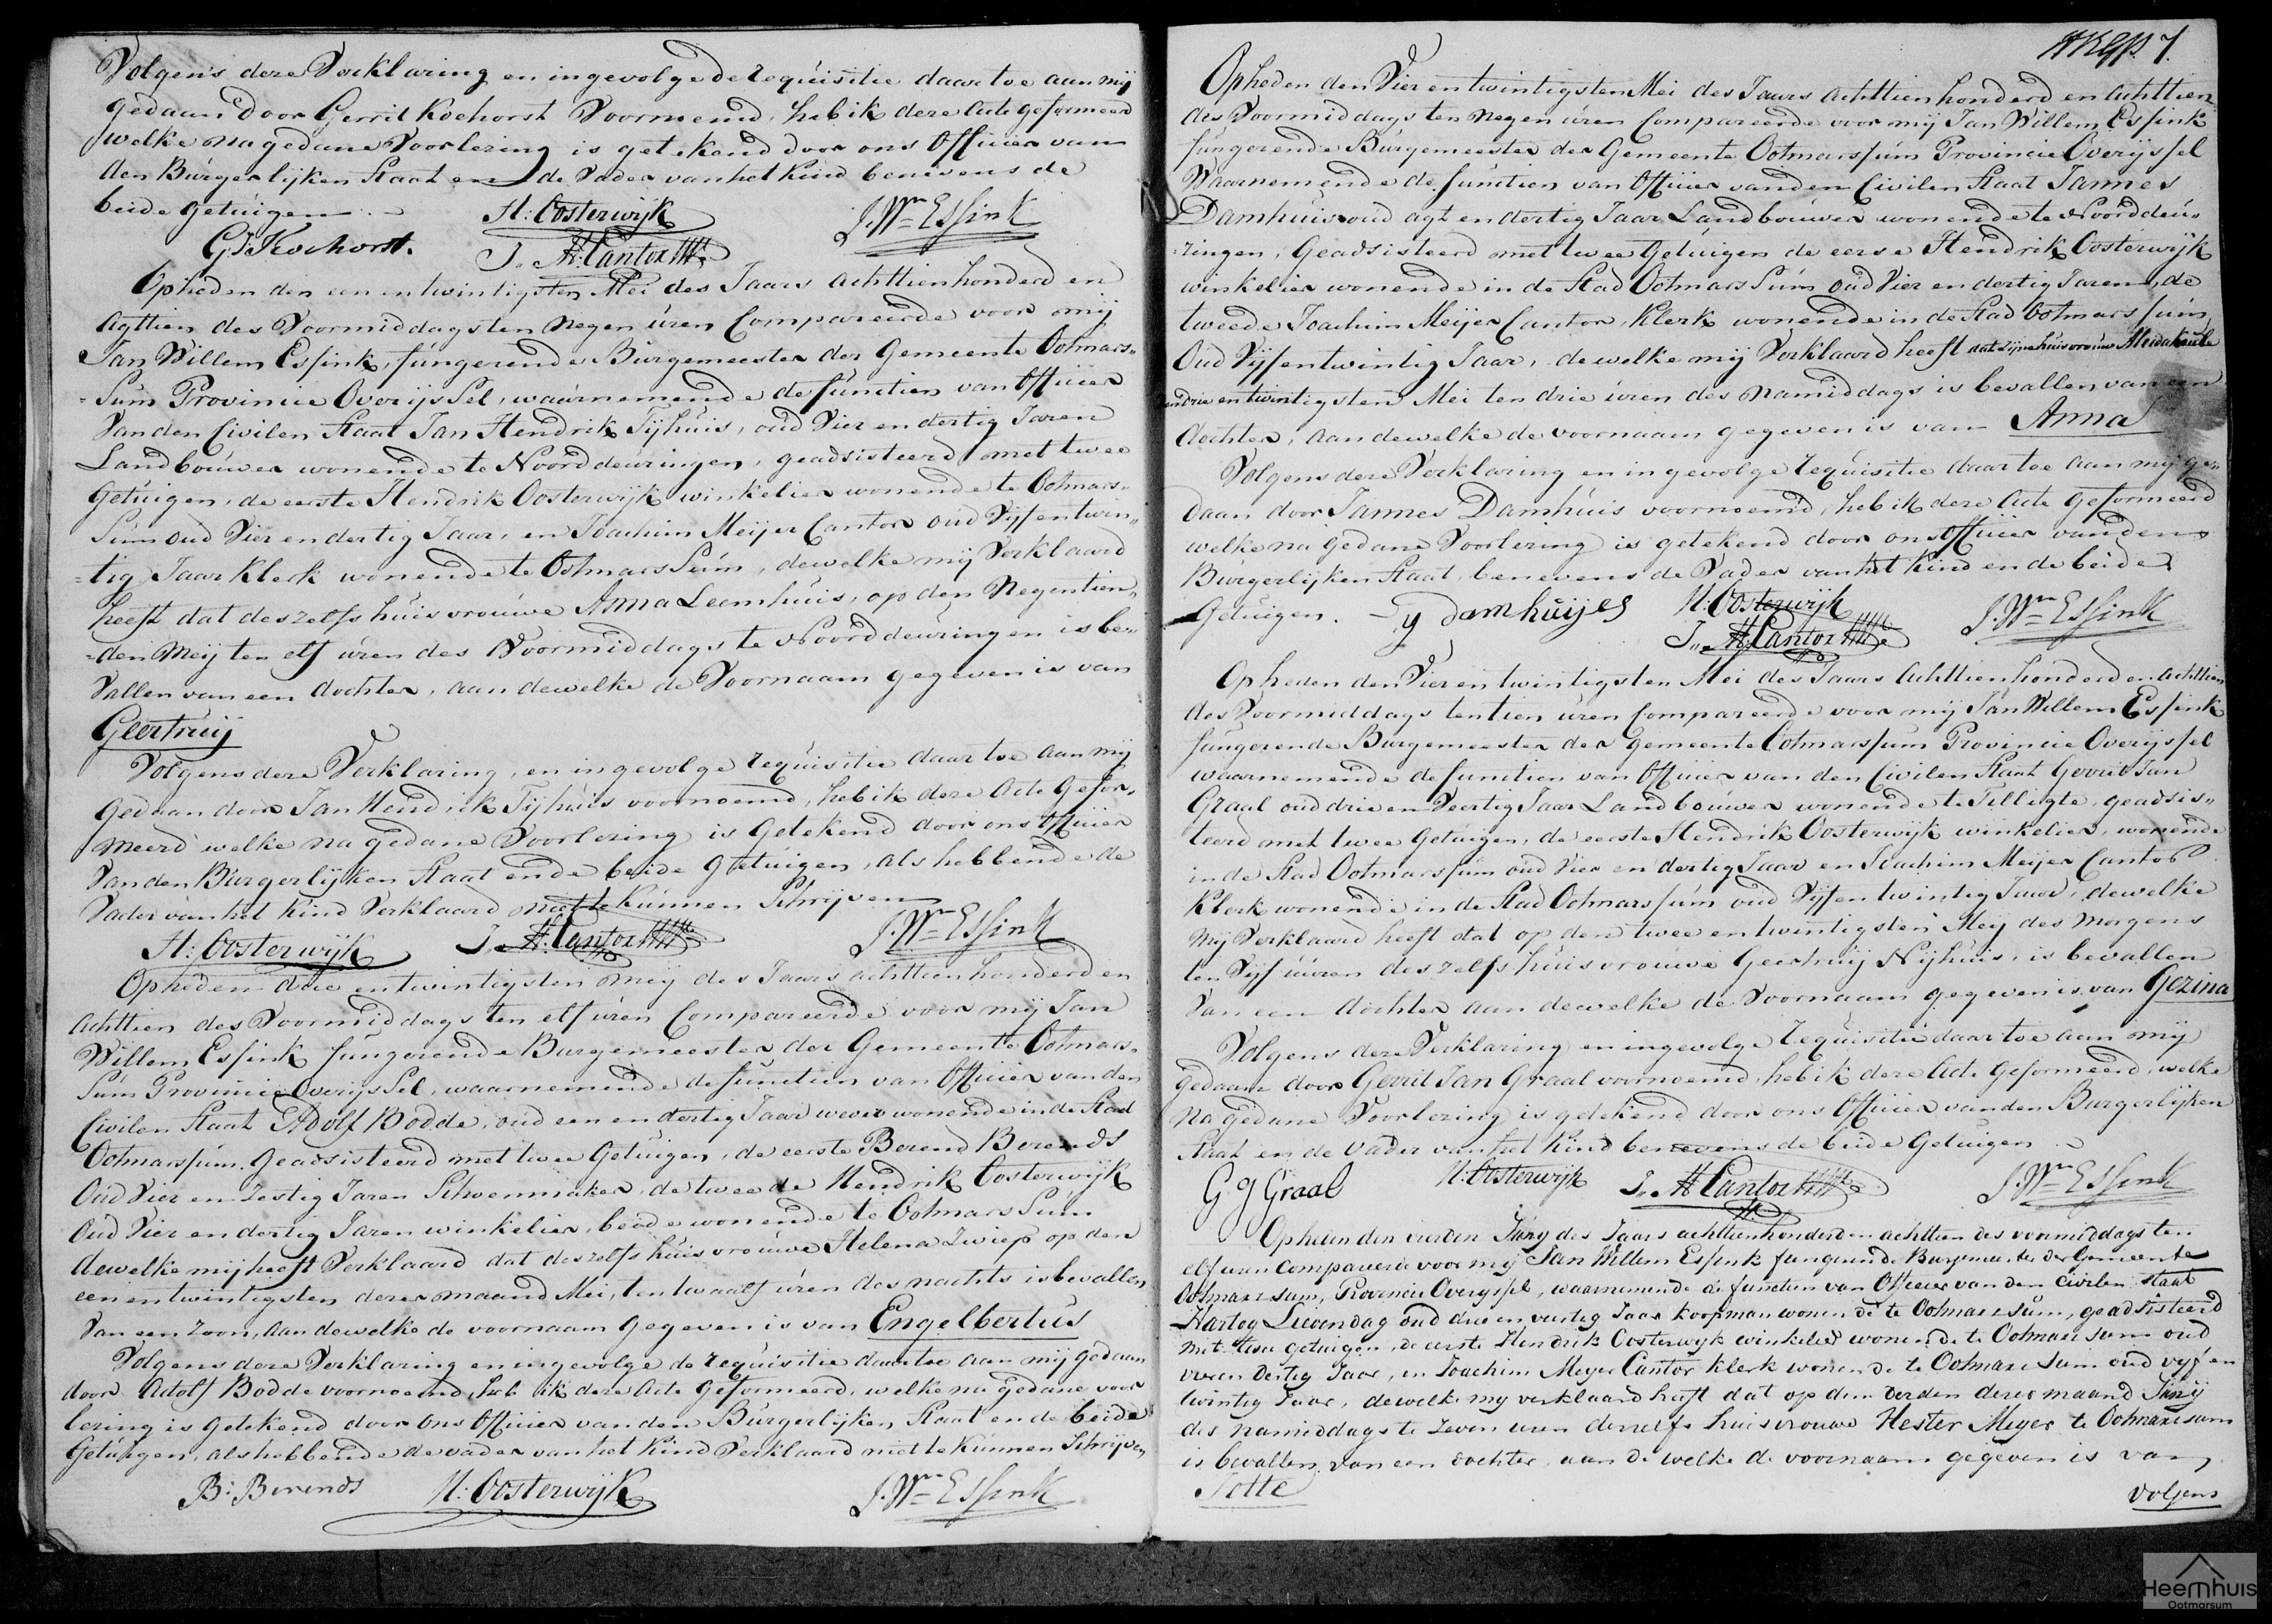 Volgens deze Verklaring en ingevolge de requisitie daartoe aan mij
gedaan door Gerrit Koehorst Voornoemd, heb ik deze Acte geformeerd
welke na gedane Voorlezing is getekend door ons Officier van
den Burgerlijken Staat en de Vader van het Kind benevens de
beide getuigen
H: Oosterwijk
J. Wm Essink
G: Koehorst.
J. M: Cantor
Opheden den een en twintigsten Mei des Jaars Achttienhonderd en
Agttien des Voormiddags ten Negen uren Compareerde voor mij
Jan Willem Essink, fungerende Burgemeester der Gemeente Ootmars-
-Sum Provincie OverijsSel, waarnemende de functien van Officier
Van den Civilen Staat Jan Hendrik Tijhuis, oud Vier en dertig Jaren
Landbouwer wonende te Noorddeuringen, geadsisteerd met twee
Getuigen, de eerste Hendrik Oosterwijk winkelier wonende te Ootmars-
Sum oud Vier en dertig Jaar, en Joachim Meijer Cantor oud Vijfentwin-
-tig Jaar Klerk wonende te OotmarsSum, dewelke mij Verklaard
heeft dat deszelfs huisvrouwe Anna Leemhuis, op den Negentien-
-den Meij ten elf uren des Voormiddags te Noorddeuringen is be-
Vallen van een dochter, aan dewelke de Voornaam gegeven is van
Geertruij
Volgens deze Verklaring, en ingevolge requisitie daartoe aan mij
Gedaan door Jan Hendrik Tijhuis voornoemd, heb ik deze Acte Gefor-
meerd welke na gedane Voorlezing is Getekend door ons Officier
Van den Burgerlijken Staat en de beide Getuigen, als hebbende de
Vader van het Kind Verklaard niet te Kunnen Schrijven
H: Oosterwijk
J. M: Cantor
J. Wm Essink
Opheden drie en twintigsten Meij des Jaars Achttienhonderd en
Achttien des Voormiddags ten elf uren Compareerde voor mij Jan
Willem Essink fungerende Burgemeester der Gemeente Ootmars-
Sum Provincie OverijsSel, waarnemende de functien van Officier van den
Civilen Staat Adolf Bodde, oud een en dertig Jaar wever wonende in de Stad
Ootmarssum. Geadsisteerd met twee Getuigen, de eerste Berend Berends
Oud Vier en Zestig Jaren Schoenmaker, de tweede Hendrik Oosterwijk
Oud Vier en dertig Jaren winkelier, beide wonende te OotmarsSum
dewelke mij heeft Verklaard dat deszelfs huisvrouwe Helena Zwiep op den
een en twintigsten dezer maand Mei, ten twaalf uren des nachts is bevallen
Van een Zoon, aan dewelke de voornaam gegeven is van Engelbertus
Volgens deze Verklaring en ingevolge de requisitie daartoe aan mij gedaan
door Adolf Bodde voornoemd, heb ik deze Acte Geformeerd, welke na gedane voor
lezing is Getekend door ons Officier van den Burgerlijken Staat en de beide
Getuigen, als hebbende de vader van het Kind Verklaard niet te Kunnen Schrijven
B: Berends
H: Oosterwijk
J. Wm Essink
7.
Opheden den Vier en twintigsten Mei des Jaars Achttienhonderd en Achttien
des Voormiddags ten Negen uren Compareerde voor mij Jan Willem Essink
fungerende Burgemeester der Gemeente Ootmarssum Provincie Overijssel
Waarnemende de functien van Officier van den Civilen Staat Jannes
Damhuis oud agt en dertig Jaar Landbouwer wonende te Noorddeu-
-ringen, Geadsisteerd met twee Getuigen de eerse Hendrik Oosterwijk
winkelier wonende in de Stad OotmarsSum oud Vier en dertig Jaren, de
tweede Joachim Meijer Cantor, Klerk wonende in de Stad Ootmarssum,
Oud Vijfentwintig Jaar, dewelke mij Verklaard heeft dat zijne huisvrouw
den drie en twintigsten Mei ten drie uren des Namiddags is bevallen van een
dochter, aan dewelke de voornaam gegeven is van Anna
Volgens deze Verklaring en ingevolge requisitie daartoe aan mij ge-
daan door Jannes Damhuis voornoemd, heb ik deze Acte Geformeerd
welke na gedane Voorlezing is getekend door ons Officier van den
Burgerlijken Staat, benevens de Vader van het Kind en de beide
Getuigen.
damhuijes
H: Oosterwijk
J. Wm Essink
J. M: Cantor
Opheden den Vier en twintigsten Mei des Jaars Achttienhonderd en Achttien
des Voormiddags ten tien uren Compareerde voor mij Jan Willem Essink
fungerende Burgemeester der gemeente Ootmarssum Provincie Overijssel
waarnemende de functien van Officier van den Civilen Staat Gerrit Jan
Graal oud drie en Veertig Jaar Landbouwer wonende te Tilligte, geadsis-
teerd met twee Getuigen, de eerste Hendrik Oosterwijk winkelier, wonende
in de Stad Ootmarssum oud Vier en dertig Jaar en Joachim Meijer Cantor
Klerk wonende in de Stad Ootmarssum oud Vijfentwintig Jaar, dewelke
Mij Verklaard heeft dat op den twee en twintigsten Meij des Morgens
ten Vijf uuren deszelfs huisvrouwe Geertruij Nijhuis, is bevallen
Van een dochter aan dewelke de Voornaam gegeven is van Gezina
Volgens deze Verklaring en ingevolge requisitie daartoe aan mij
gedaan door Gerrit Jan Graal voornoemd, heb ik deze Acte Geformeerd, welke
na gedane Voorlezing is getekend door ons Officier van den Burgerlijken
Staat en de Vader van het Kind benevens de beide Getuigen
G J Graal
H: Oosterwijk
J. M: Cantor
J. Wm Essink
Opheden den vierden Junij des Jaars achttienhonderd en achttien des voormiddags ten
elf uren Compareerde voor mij Jan Willem Essink fungerende Burgemeester der Gemeente
Ootmarssum, Provincie Overyssel, waarnemende de functien van Officier van den Civilen Staat
Hartog Lievendag oud drie en veertig Jaar Koopman wonende te Ootmarssum, geadsisteerd
met twee getuigen, de eerste Hendrik Oosterwyk winkelier wonende te Ootmarssum oud
vier en dertig Jaar, en Joachim Meyer Cantor Klerk wonende te Ootmarssum oud vyf en
twintig Jaar, dewelke my verklaard heeft dat op den derden dezer maand Junij
des namiddags te Zeven uren deszelfs huisvrouwe Hester Meyer te Ootmarssum
is bevallen van een dochter, aan dewelke de voornaam gegeven is van
Jotte
Volgens
Heemhuis
Ootmarsum